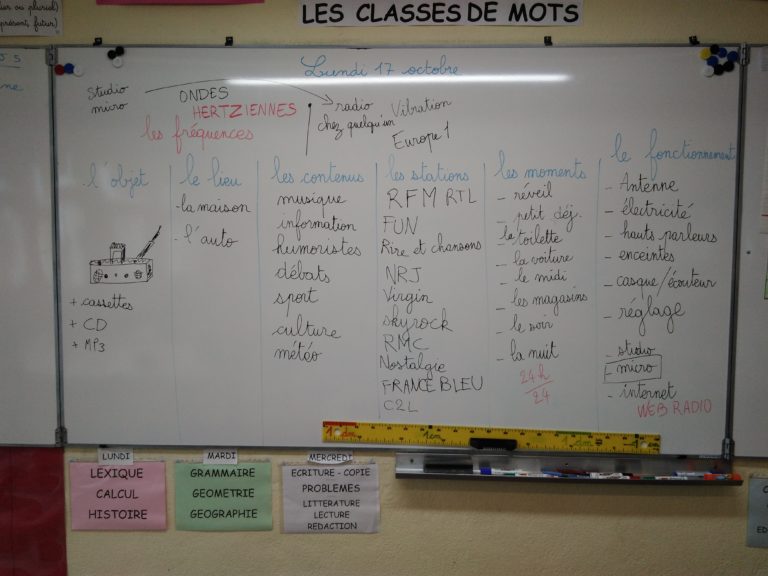 ier ou pluriel)
présent, futur)
LES CLASSES DE MOTS
Lundi 17 octobre
Studio
micro
ONDES
HERTZIENNES
les fréquences
radio
chez quelqu'un
Vibration
Europe 1
l'objet
+ cassettes
+ CD
+ MP3
le lieu
- la maison
- l'auto
les contenus
musique
information
humoristes
débats
sport
culture
météo
les stations
RFM RTL
FUN
Rire et chansons
NRJ
Virgin
skyrock
RMC
Nostalgie
FRANCE BLEU
C2L
les moments
- réveil
- petit déj.
- la toilette
- la voiture
- le midi
- les magasins
- le soir
- la nuit
24h
24
le fonctionnement
- Antenne
- électricité
- hauts parleurs
- enceintes
- casque/écouteur
- réglage
- studio
- micro
- internet
WEB RADIO
1cm
LUNDI
LEXIQUE
CALCUL
HISTOIRE
MARDI
GRAMMAIRE
GEOMETRIE
GEOGRAPHIE
MERCREDI
ECRITURE - COPIE
PROBLEMES
LITTERATURE
LECTURE
REDACTION